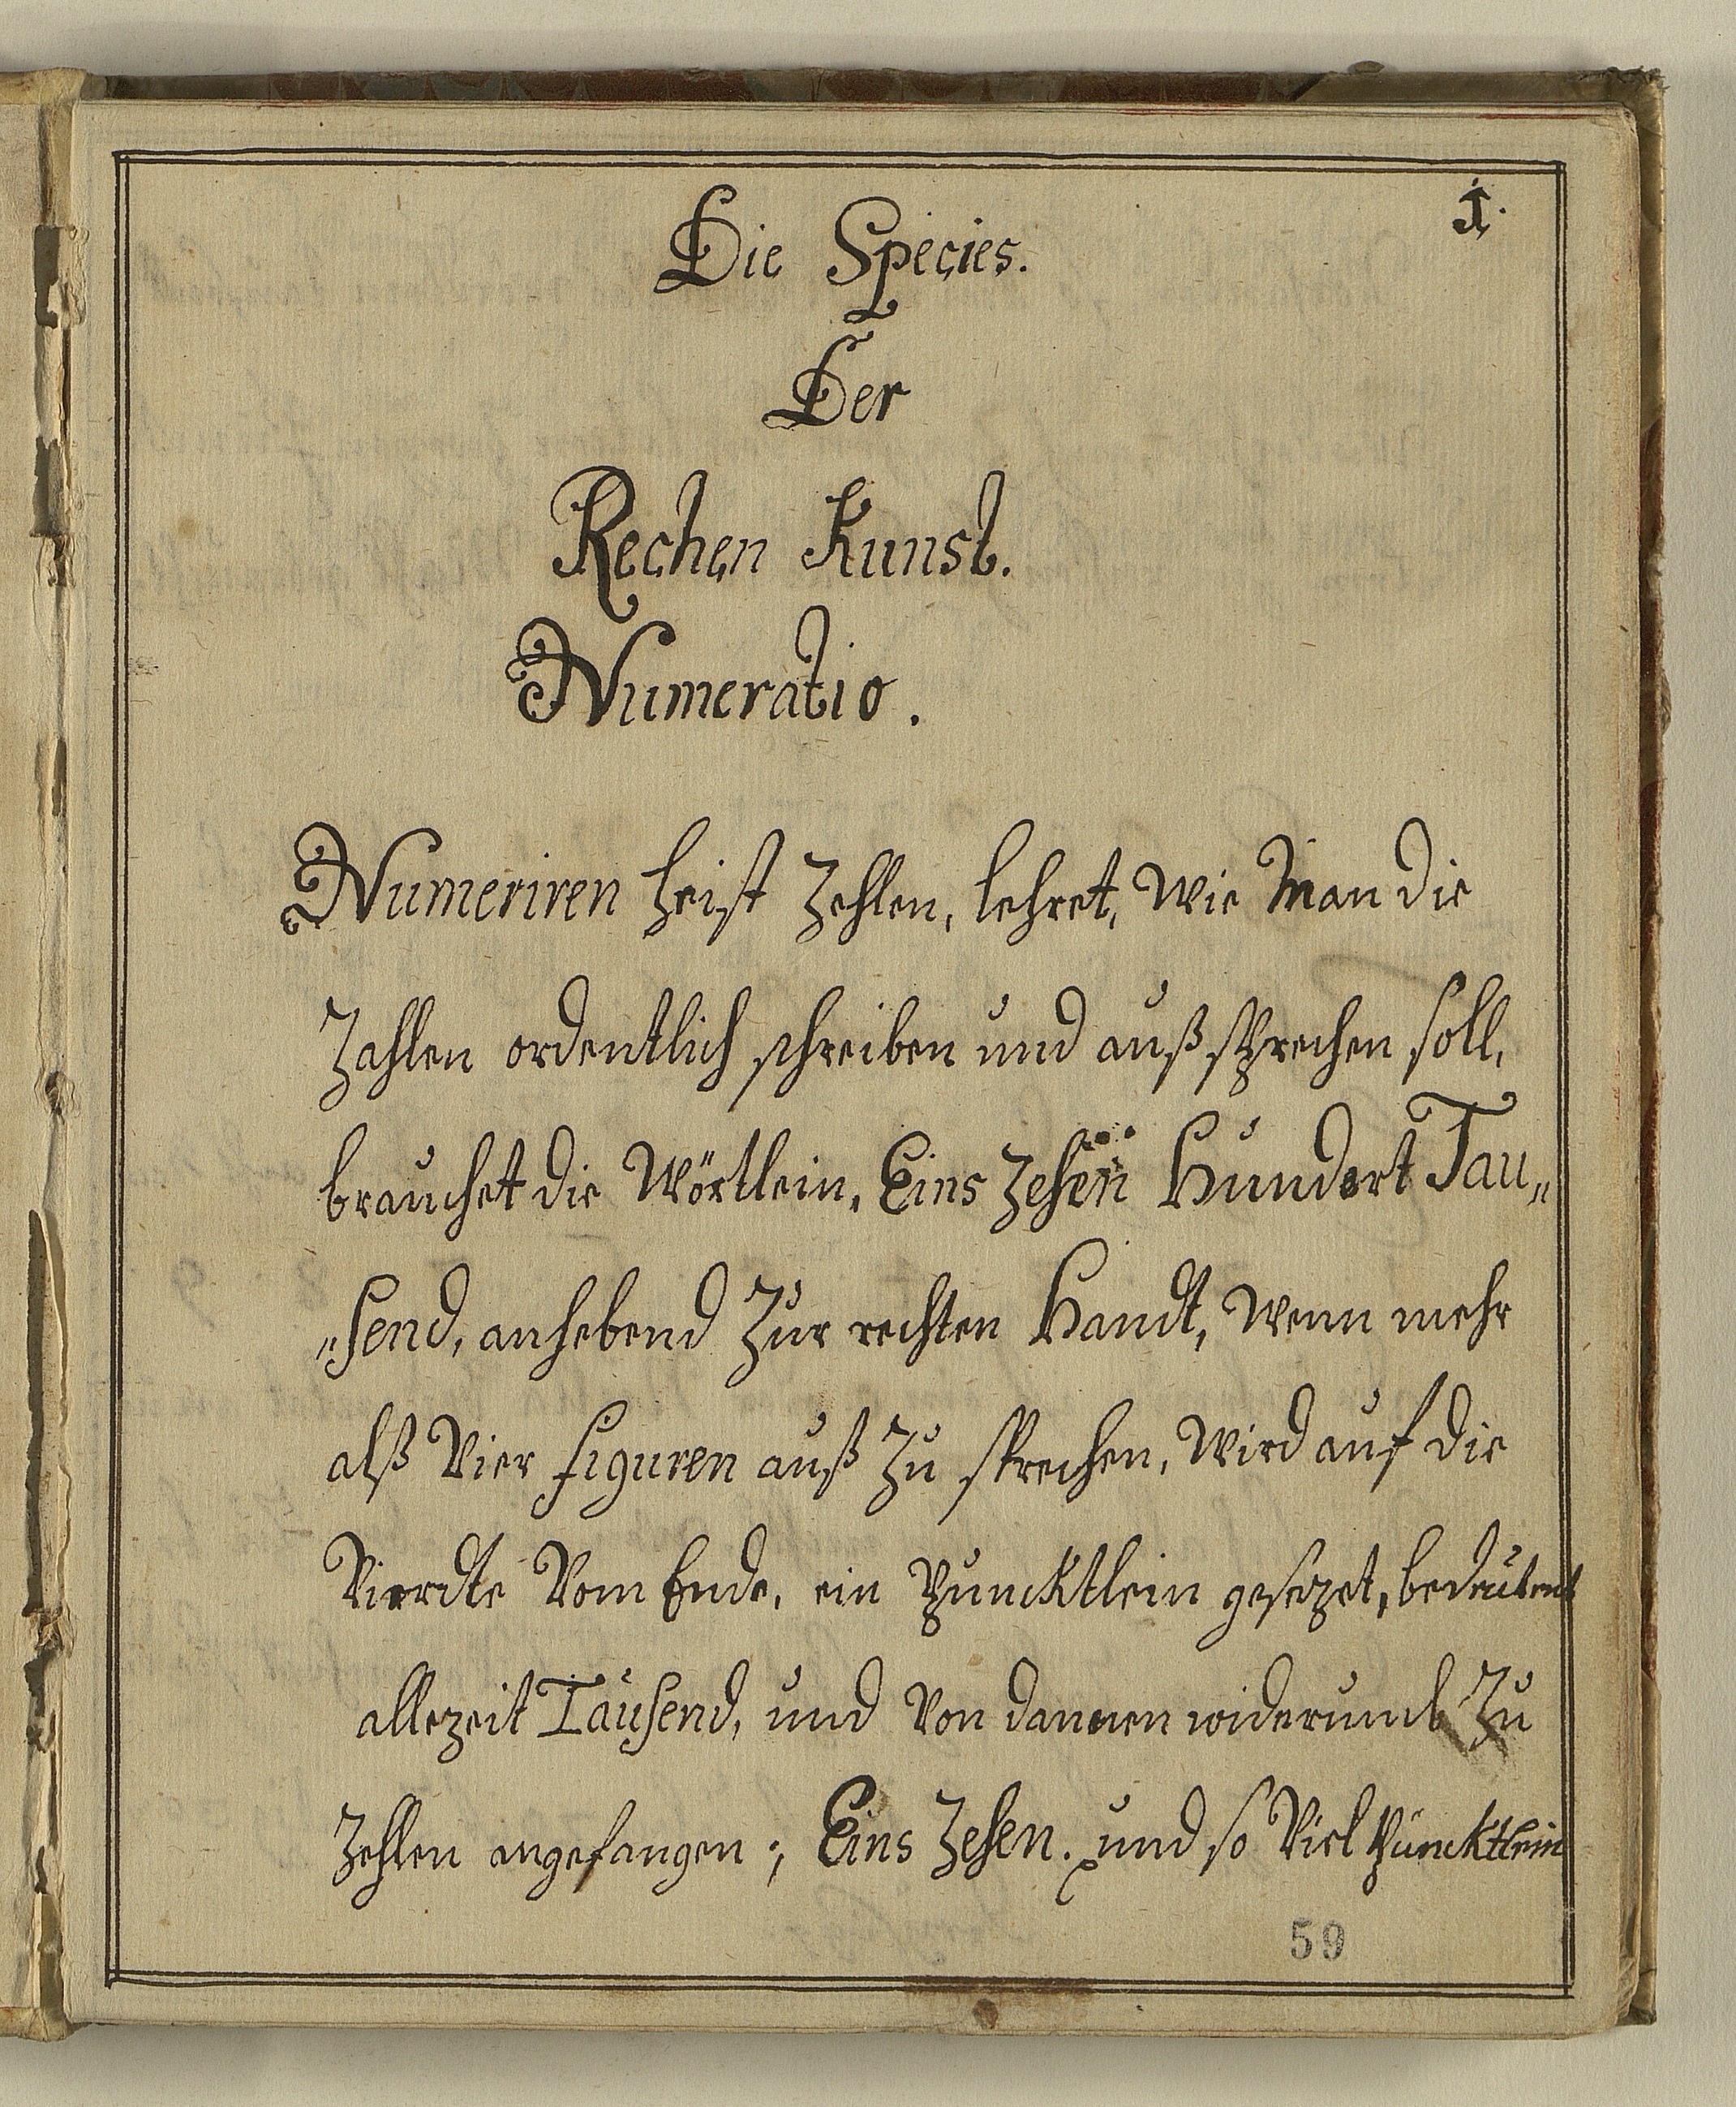 1.
Die Species.
Der
Rechen Kunst.
Numeratio.
Numeriren heist Zehlen, lehret, Wie Man die
Zahlen ordentlich schreiben und außsprechen soll,
brauchet die Wörtlein, Eins Zehen Hundert Tau„
„send, anhebend Zur rechten Handt, Wenn mehr
alß Vier figuren auß Zu sprechen, Wird auf die
Vierdte Vom Ende, ein Puncktlein gesezet, bedeutent
allezeit Tausend, und Von dannen widerumb Zu
Zehlen angefangen; Eins Zehen. und so Viel Püncktlein
59